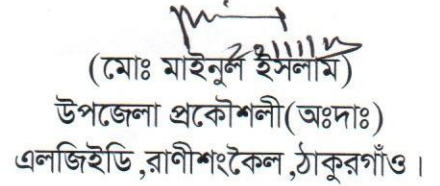 (মোঃ মাইনুল ইসলাম)
উপজেলা প্রকৌশলী(অঃদাঃ)
এলজিইডি ,রাণীশংকৈল ,ঠাকুরগাঁও।